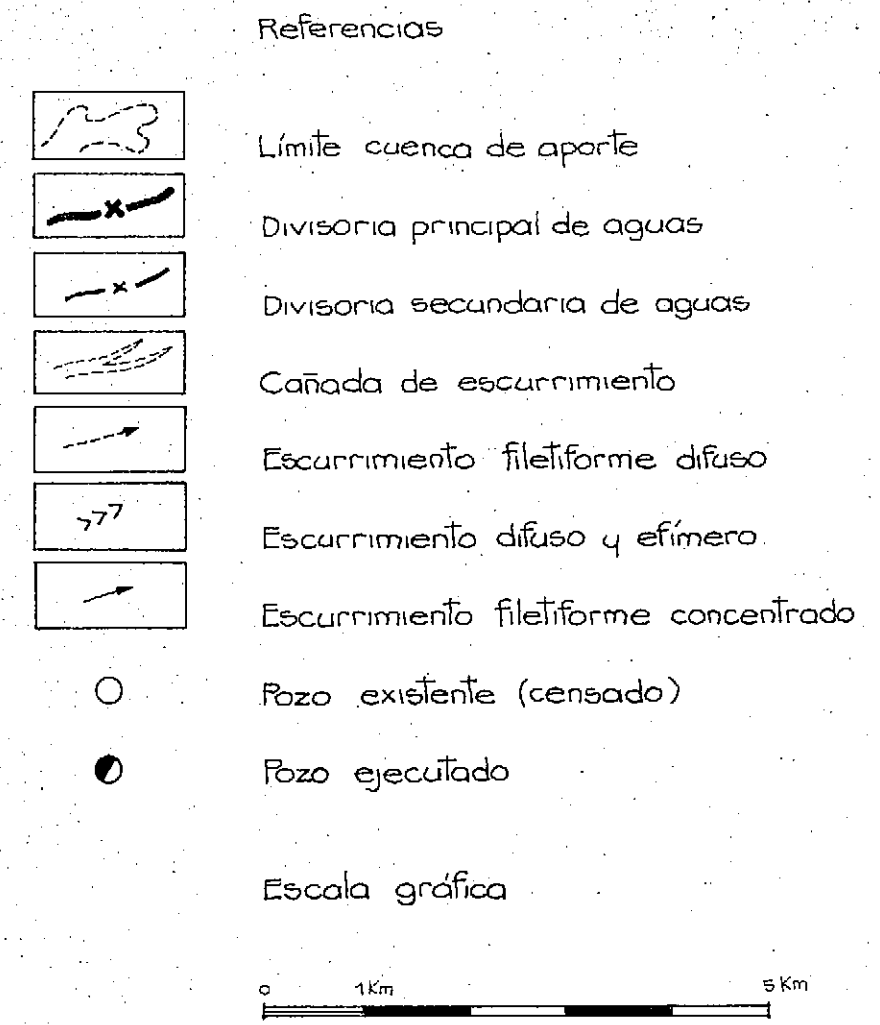 Referencias
Límite cuenca de aporte
Divisoria principal de aguas
Divisoria secundaria de aguas
Cañada de escurrimiento
Escurrimiento filetiforme difuso
Escurrimiento difuso y efímero
Escurrimiento filetiforme concentrado
Pozo existente (censado)
Pozo ejecutado
Escala gráfica
0 1Km 5 Km